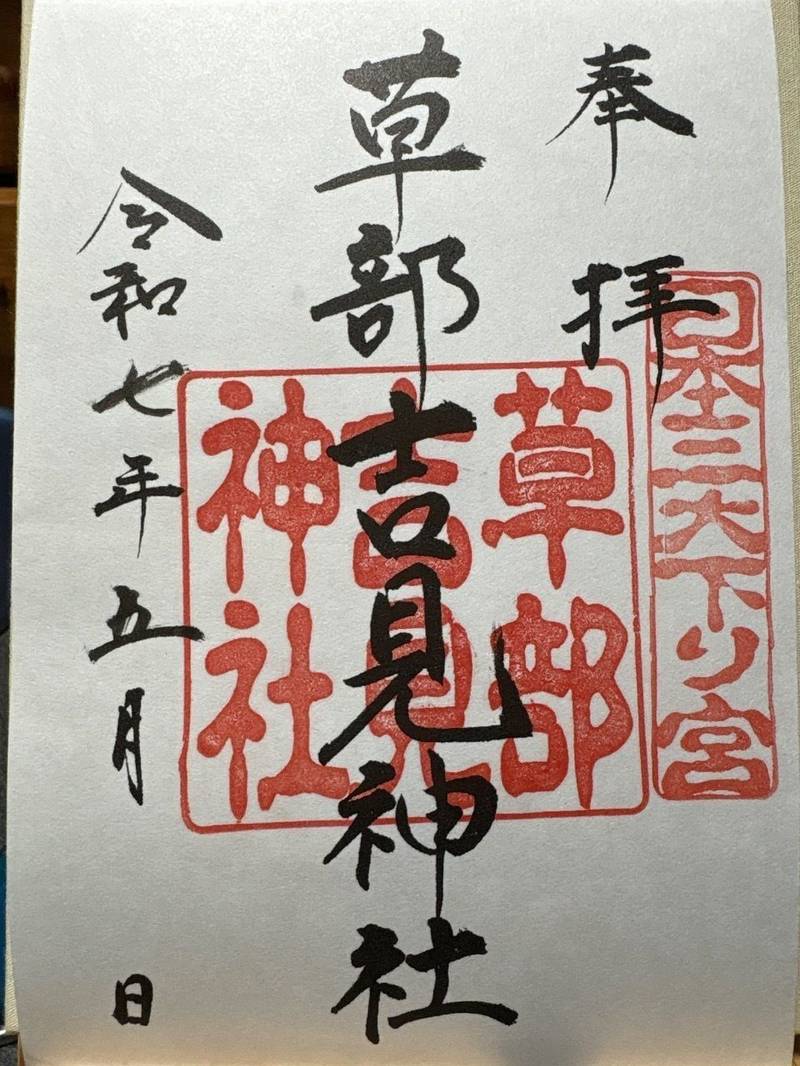 奉拝
日本三大下り宮
草部吉見神社
草部
吉見
神社
令和七年五月 日